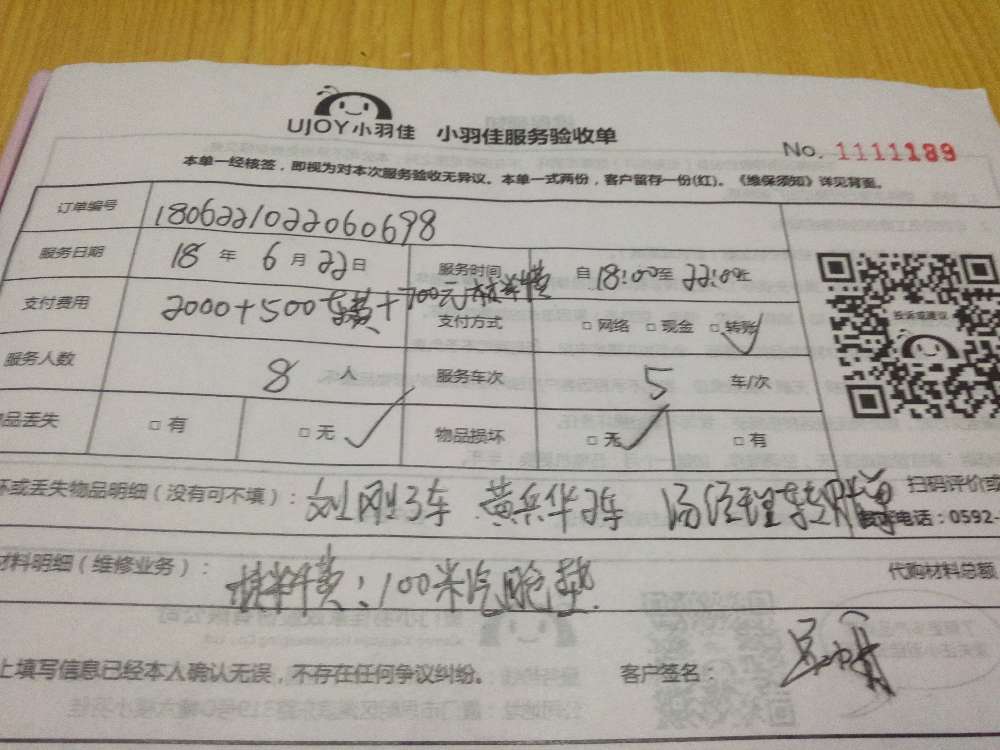 UJOY小羽佳 小羽佳服务验收单
No. 1111189
本单一经核签，即视为对本次服务验收无异议。本单一式两份，客户留存一份(红)。《维保须知》详见背面。
订单编号 1806221022060698
服务日期 18 年 6 月 22 日 服务时间 自 18:00 至 22:00 止
支付费用 2000+500 +700元材料费 支付方式 □ 网络 □ 现金 □ 转账
投诉或建议
服务人数 8 人 服务车次 5 车/次
品丢失 □ 有 □ 无 物品损坏 □ 无 □ 有
坏或丢失物品明细（没有可不填）： 刘刚3车 黄兵华2车 汤经理
扫码评价或
电话：0592-
材料明细（维修业务）： 材料费：100米汽泡垫
代购材料总额
上填写信息已经本人确认无误，不存在任何争议纠纷。 客户签名：